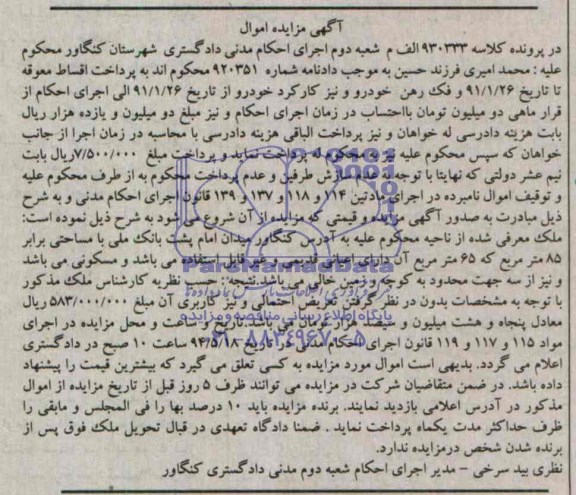 آگهی مزایده اموال
در پرونده کلاسه ۹۳۰۳۳۳ الف م شعبه دوم اجرای احکام مدنی دادگستری شهرستان کنگاور محکوم
علیه : محمد امیری فرزند حسین به موجب دادنامه شماره ۹۲۰۳۵۱ محکوم اند به پرداخت اقساط معوقه
تا تاریخ ۹۱/۱/۲۶ و فک رهن خودرو و نیز کارکرد خودرو از تاریخ ۹۱/۱/۲۶ الی اجرای احکام از
قرار ماهی دو میلیون تومان بااحتساب در زمان اجرای احکام و نیز مبلغ دو میلیون و یازده هزار ریال
بابت هزینه دادرسی له خواهان و نیز پرداخت الباقی هزینه دادرسی با محاسبه در زمان اجرا از جانب
خواهان که سپس محکوم علیه نیز به محکوم له پرداخت نماید و پرداخت مبلغ ۷/۵۰۰/۰۰۰ ریال بابت
نیم عشر دولتی که نهایتا با توجه به عدم سازش طرفین و عدم پرداخت محکوم به از طرف محکوم علیه
و توقیف اموال نامبرده در اجرای مادتین ۱۱۴ و ۱۱۸ و ۱۳۷ و ۱۳۹ قانون اجرای احکام مدنی و به شرح
ذیل مبادرت به صدور آگهی مزایده و قیمتی که مزایده از آن شروع می شود به شرح ذیل نموده است:
ملک معرفی شده از ناحیه محکوم علیه به آدرس کنگاور میدان امام پشت بانک ملی با مساحتی برابر
۸۵ متر مربع که ۶۵ متر مربع آن دارای اعیانی قدیمی و غیر قابل استفاده می باشد و مسکونی می باشد
و نیز از سه جهت محدود به کوچه و زمین خالی می باشد.نتیجه: حسب نظریه کارشناس ملک مذکور
با توجه به مشخصات بدون در نظر گرفتن تعریض احتمالی و نیز کاربری آن مبلغ ۵۸۳/۰۰۰/۰۰۰ ریال
معادل پنجاه و هشت میلیون و سیصد هزار تومان می باشد.تاریخ و ساعت و محل مزایده در اجرای
مواد ۱۱۵ و ۱۱۷ و ۱۱۹ قانون اجرای احکام مدنی در تاریخ ۹۴/۵/۱۸ ساعت ۱۰ صبح در دادگستری
اعلام می گردد. بدیهی است اموال مورد مزایده به کسی تعلق می گیرد که بیشترین قیمت را پیشنهاد
داده باشد. در ضمن متقاضیان شرکت در مزایده می توانند ظرف ۵ روز قبل از تاریخ مزایده از اموال
مذکور در آدرس اعلامی بازدید نمایند. برنده مزایده باید ۱۰ درصد بها را فی المجلس و مابقی را
ظرف حداکثر مدت یکماه پرداخت نماید . ضمنا دادگاه تعهدی در قبال تحویل ملک فوق پس از
برنده شدن شخص درمزایده ندارد.
نظری بید سرخی - مدیر اجرای احکام شعبه دوم مدنی دادگستری کنگاور
ParsNamadData
پایگاه اطلاع رسانی مناقصه و مزایده
۰۲۱-۸۸۳۴۹۶۷۰-۵